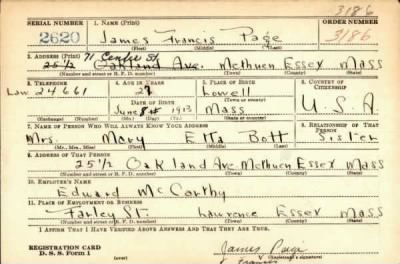 3186
SERIAL NUMBER 1. NAME (Print) ORDER NUMBER
2620 James Francis Page 3186
(First) (Middle) (Last)
71 Center St
2. ADDRESS (Print)
25 1/2 Oakland Ave. Methuen Essex Mass
(Number and street or R. F. D. number) (Town) (County) (State)
3. TELEPHONE 4. AGE IN YEARS 5. PLACE OF BIRTH 6. COUNTRY OF CITIZENSHIP
Law. 24661 27 Lowell
(Town or county)
DATE OF BIRTH U.S.A.
June 1913 Mass
(Exchange) (Number) (Mo.) (Day) (Yr.) (State or country)
7. NAME OF PERSON WHO WILL ALWAYS KNOW YOUR ADDRESS 8. RELATIONSHIP OF THAT PERSON
Mrs. Mary Etta Bott Sister
(Mr., Mrs., Miss) (First) (Middle) (Last)
9. ADDRESS OF THAT PERSON
25 1/2 Oakland Ave Methuen Essex Mass
(Number and street or R. F. D. number) (Town) (County) (State)
10. EMPLOYER'S NAME
Edward McCarthy
11. PLACE OF EMPLOYMENT OR BUSINESS
Farley St. Lawrence Essex Mass
(Number and street or R. F. D. number) (Town) (County) (State)
I AFFIRM THAT I HAVE VERIFIED ABOVE ANSWERS AND THAT THEY ARE TRUE.
REGISTRATION CARD
D. S. S. Form 1
James Page
Francis